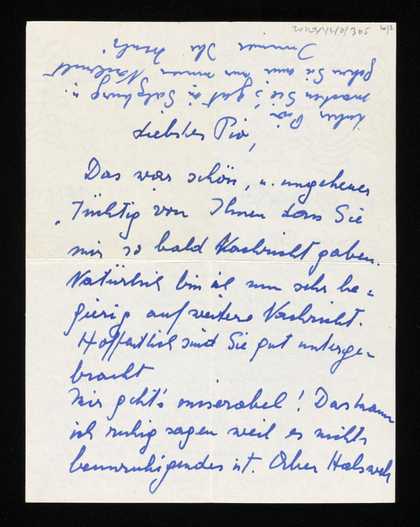 Liebster Pio,
Das war schön, u. ungeheuer
tüchtig von Ihnen dass Sie
mir so bald Nachricht gaben.
Natürlich bin ich nun sehr be=
gierig auf weitere Nachricht.
Hoffentlich sind Sie gut unterge=
bracht
Mir geht's miserabel! Das kann
ich ruhig sagen weil es nichts
beunruhigendes ist. Aber Halsweh
Lieber Pio
machen Sie's gut in Salzburg u.
geben Sie mir nur immer Nachricht
Immer Ihr